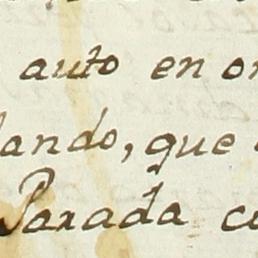 auto en or
lando, que
Parada co